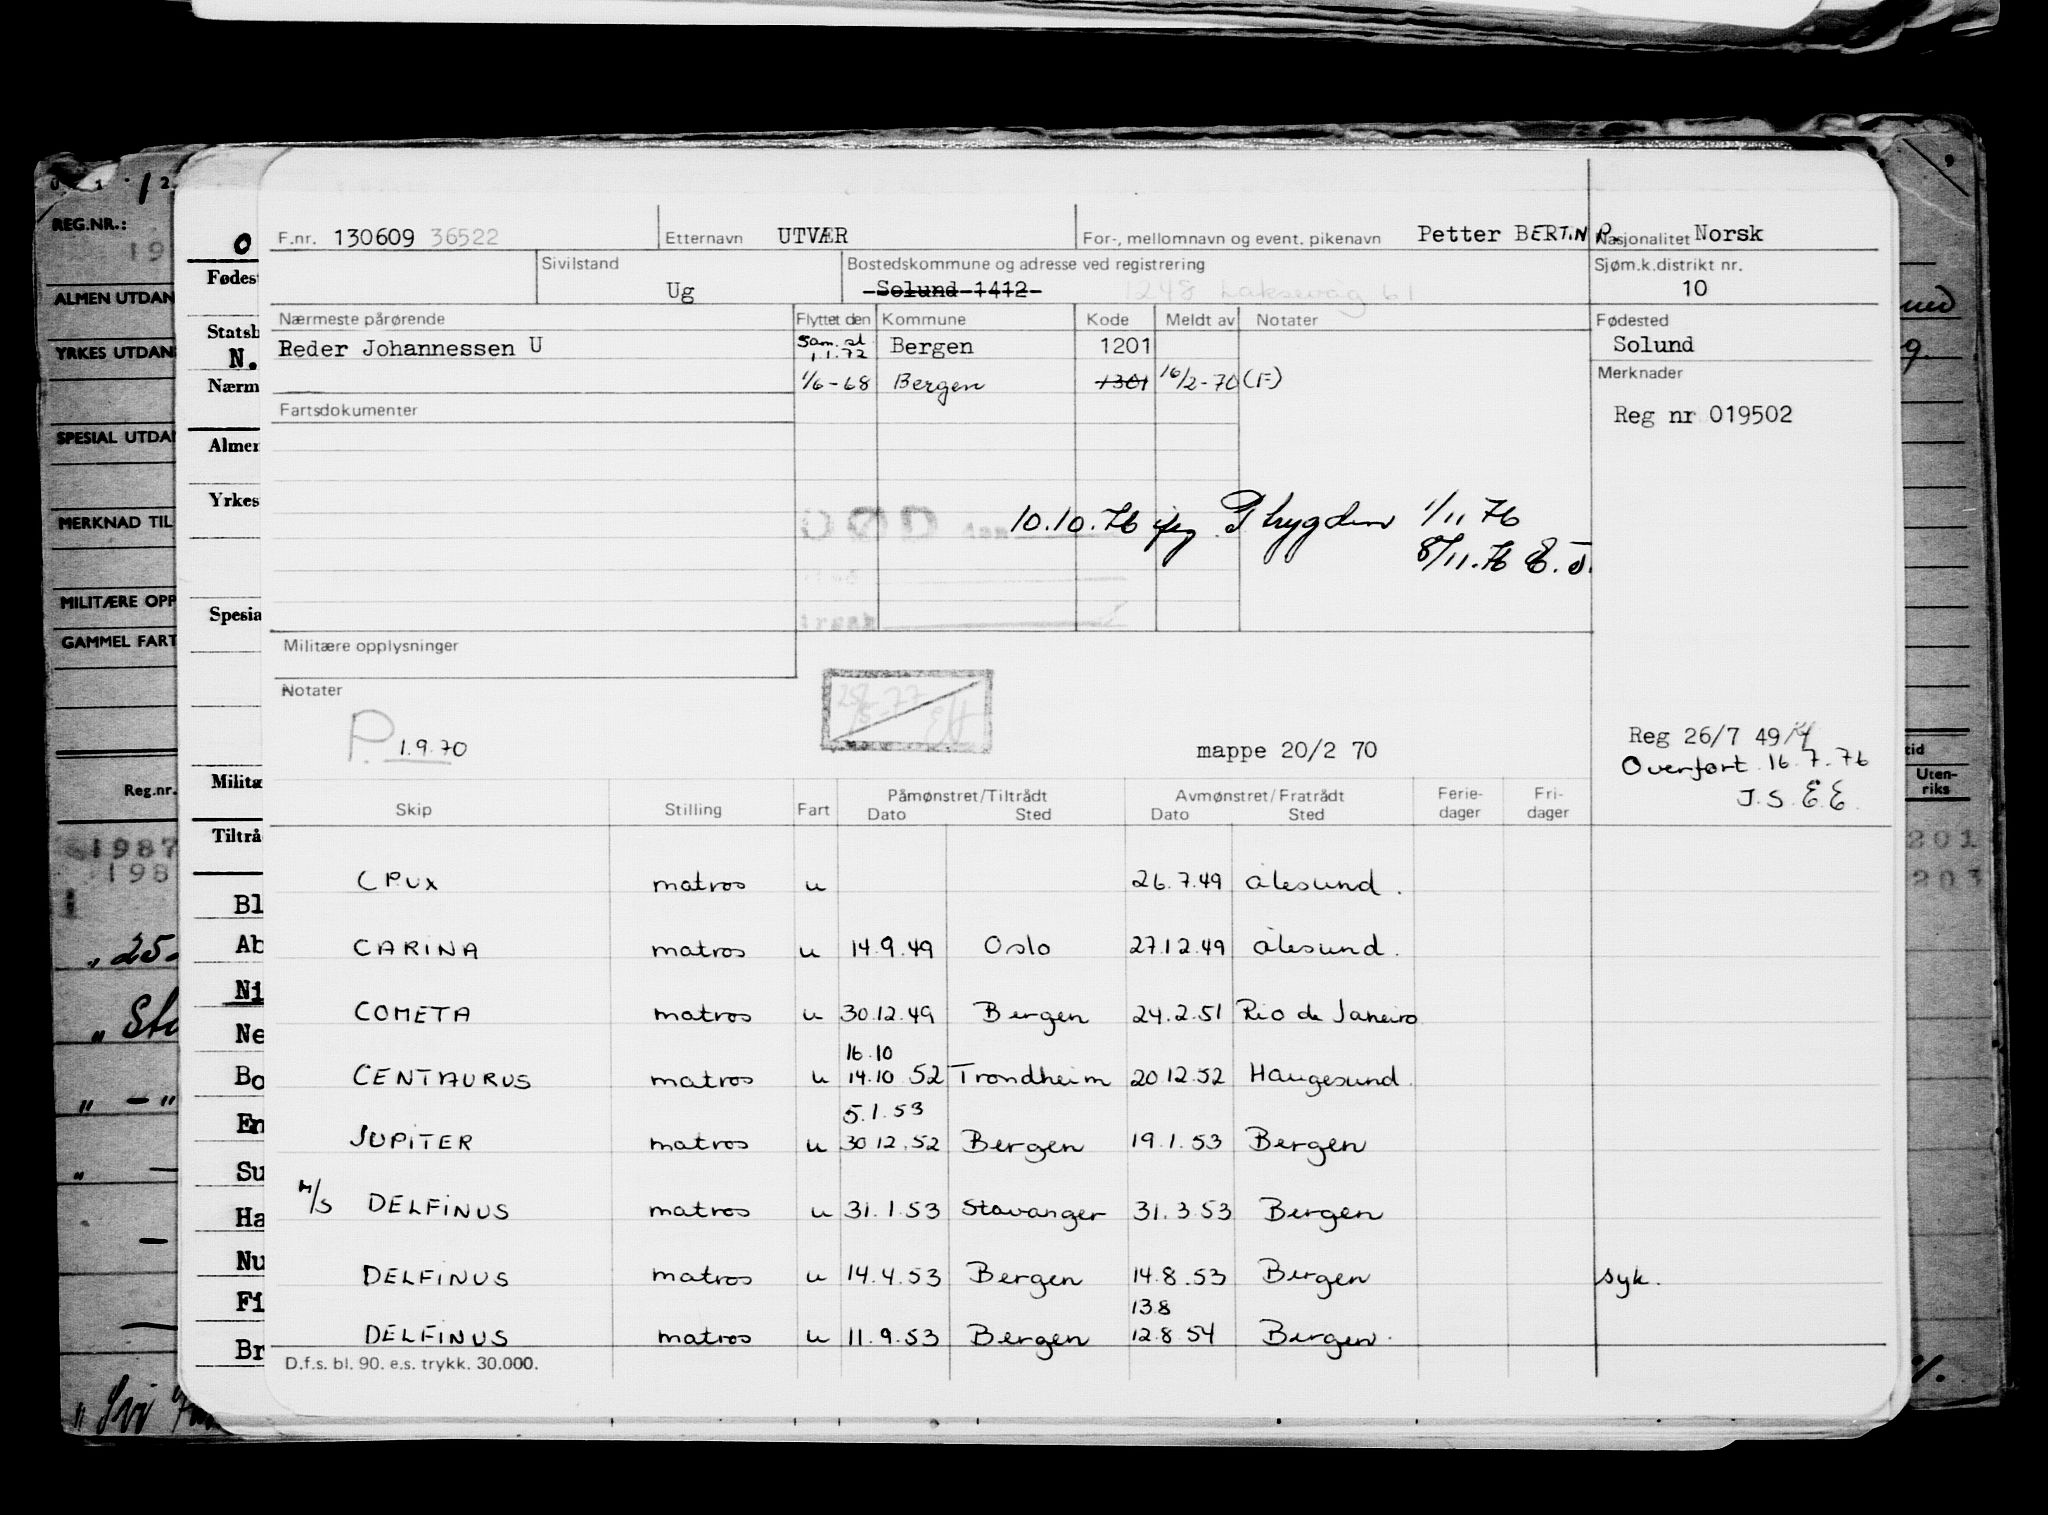 F.nr. 130609 36522 Etternavn UTVÆR For-, mellomnavn og event. pikenavn Petter BERTiN P. Nasjonalitet Norsk
Sivilstand Ug Bostedskommune og adresse ved registrering Solund 1412 1248 Laksevåg 61 Sjøm.k.distrikt nr. 10
Nærmeste pårørende Flyttet den Kommune Kode Meldt av Notater Fødested
Reder Johannessen U Sam. sl 1.1.72 Bergen 1201 Solund
1/6-68 Bergen 1301 16/2-70 (F) Merknader
Fartsdokumenter Reg nr 019502
DØD den 10.10.76 Trygden 1/11 76
8/11.76 E.J.
Militære opplysninger
Notater
P. 1.9.70 mappe 20/2 70 Reg 26/7 49/
Overført 16.7.76
J.S. E.E.
Skip Stilling Fart Påmønstret/Tiltrådt Dato Sted Avmønstret/Fratrådt Dato Sted Ferie-dager Fri-dager
CPUX matros u 26.7.49 Ålesund.
CARiNA matros u 14.9.49 Oslo 27.12.49 Ålesund.
COMETA matros u 30.12.49 Bergen 24.2.51 Rio de Janeiro
16.10
CENTAURUS matros u 14.10 52 Trondheim 20.12.52 Haugesund.
5.1.53
JUPiTER matros u 30.12.52 Bergen 19.1.53 Bergen
M/S DELFiNUS matros u 31.1.53 Stavanger 31.3.53 Bergen
DELFiNUS matros u 14.4.53 Bergen 14.8.53 Bergen syk.
13.8
DELFiNUS matros u 11.9.53 Bergen 12.8.54 Bergen.
D.f.s. bl. 90. e.s. trykk. 30.000.
REG.NR.:
ALMEN UTDAN
YRKES UTDAN
SPESIAL UTDA
MERKNAD TIL
MILITÆRE OPP
GAMMEL FART
Reg.nr.
1987
198
Fødest
Statsb
N.
Nærm
Almen
Yrkes
Spesia
Militæ
Tiltrå
Bl
Ab
Ni
Ne
Bo
En
Su
Ha
Nu
Fi
Br
Uten-
riks
201
203